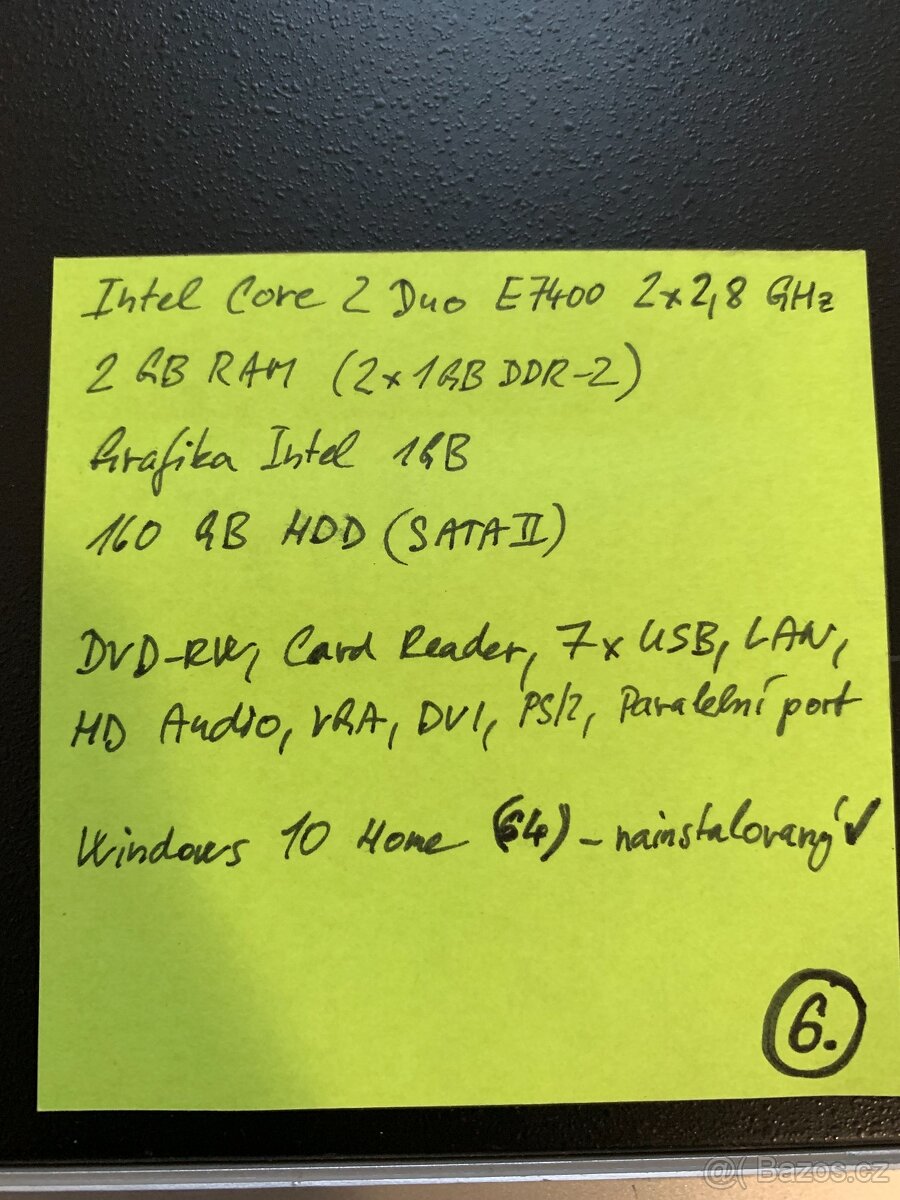 Intel Core 2 Duo E7400 2x2,8 GHz
2 GB RAM (2x1GB DDR-2)
Grafika Intel 1GB
160 GB HDD (SATA II)
DVD-RW, Card Reader, 7x USB, LAN,
HD Audio, VGA, DVI, PS/2, Paralelní port
Windows 10 Home (64) - nainstalovaný ✓
6.
@( Bazos.cz